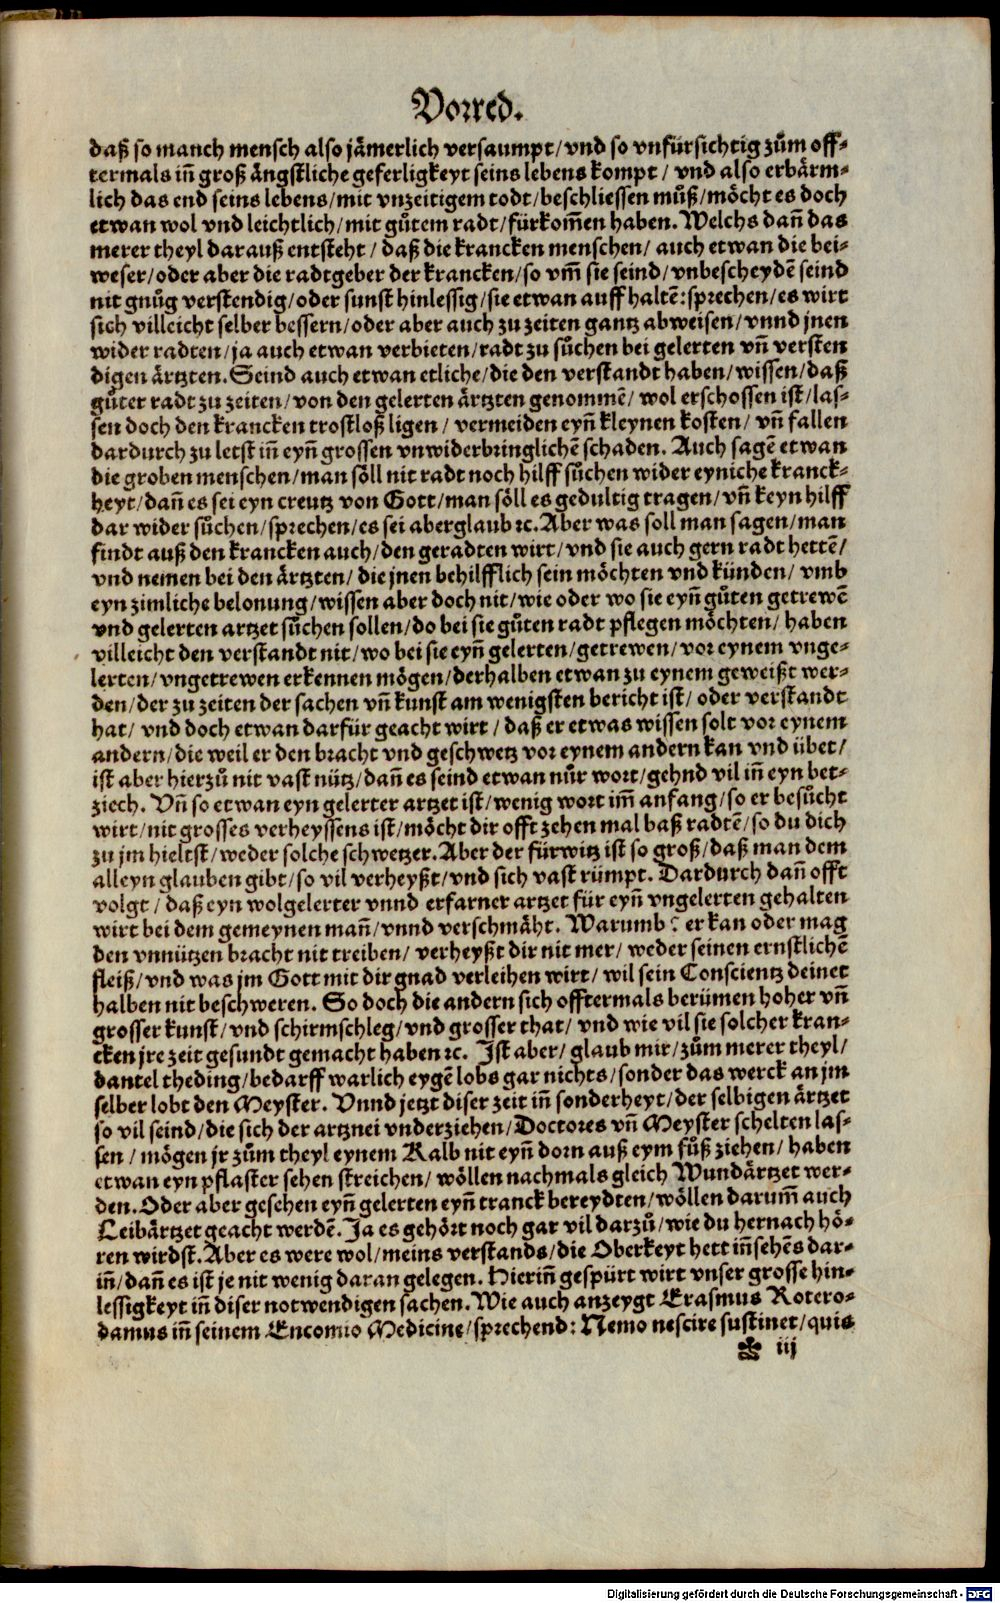 Vorred.
daß so manch mensch also jämerlich versaumpt/ vnd so vnfürsichtig zům off-
termals iñ groß ängstliche geferligkeyt seins lebens kompt / vnd also erbärm-
lich das end seins lebens/ mit vnzeitigem todt/ beschliessen můß/ möcht es doch
etwan wol vnd leichtlich/ mit gůtem radt/ fürkom̃en haben. Welchs dañ das
merer theyl darauß entsteht / daß die krancken menschen/ auch etwan die bei-
weser/ oder aber die radtgeber der krancken/ so vm̃ sie seind/ vnbescheydẽ seind
nit gnůg verstendig/ oder sunst hinlessig/ sie etwan auff haltẽ: sprechen/ es wirt
sich villeicht selber bessern/ oder aber auch zu zeiten gantz abweisen/ vnnd jnen
wider radten/ ja auch etwan verbieten/ radt zu sůchen bei gelerten vñ versten
digen ärtzten. Seind auch etwan etliche/ die den verstandt haben/ wissen/ daß
gůter radt zu zeiten/ von den gelerten ärtzten genommẽ/ wol erschossen ist/ las-
sen doch den krancken trostloß ligen / vermeiden eyñ kleynen kosten/ vñ fallen
dardurch zu letst iñ eyñ grossen vnwiderbringlichẽ schaden. Auch sagẽ etwan
die groben menschen/ man söll nit radt noch hilff sůchen wider eyniche kranck-
heyt/ dañ es sei eyn creutz von Gott/ man söll es gedultig tragen/ vñ keyn hilff
dar wider sůchen/ sprechen/ es sei aberglaub ꝛc. Aber was soll man sagen/ man
findt auß den krancken auch/ den geradten wirt/ vnd sie auch gern radt hettẽ/
vnd nemen bei den ärtzten/ die jnen behilfflich sein möchten vnd künden/ vmb
eyn zimliche belonung/ wissen aber doch nit/ wie oder wo sie eyñ gůten getrewẽ
vnd gelerten artzet sůchen sollen/ do bei sie gůten radt pflegen möchten/ haben
villeicht den verstandt nit/ wo bei sie eyñ gelerten/ getrewen/ vor eynem vnge-
lerten/ vngetrewen erkennen mögen/ derhalben etwan zu eynem geweißt wer-
den/ der zu zeiten der sachen vñ kunst am wenigsten bericht ist/ oder verstandt
hat/ vnd doch etwan darfür geacht wirt / daß er etwas wissen solt vor eynem
andern/ die weil er den bracht vnd geschwetz vor eynem andern kan vnd übet/
ist aber hierzů nit vast nütz/ dañ es seind etwan nůr wort/ gehnd vil iñ eyn bet-
ziech. Vñ so etwan eyn gelerter artzet ist/ wenig wort im̃ anfang/ so er besůcht
wirt/ nit grosses verheyssens ist/ möcht dir offt zehen mal baß radtẽ/ so du dich
zu jm hieltst/ weder solche schwetzer. Aber der fürwitz ist so groß/ daß man dem
alleyn glauben gibt/ so vil verheyßt/ vnd sich vast rümpt. Dardurch dañ offt
volgt / daß eyn wolgelerter vnnd erfarner artzet für eyñ vngelerten gehalten
wirt bei dem gemeynen mañ/ vnnd verschmäht. Warumb? er kan oder mag
den vnnützen bracht nit treiben/ verheyßt dir nit mer/ weder seinen ernstlichẽ
fleiß/ vnd was jm Gott mit dir gnad verleihen wirt/ wil sein Conscientz deinet
halben nit beschweren. So doch die andern sich offtermals berümen hoher vñ
grosser kunst/ vnd schirmschleg/ vnd grosser that/ vnd wie vil sie solcher kran-
cken jre zeit gesundt gemacht haben ꝛc. Ist aber/ glaub mir/ zům merer theyl/
dantel theding/ bedarff warlich eygẽ lobs gar nichts/ sonder das werck an jm
selber lobt den Meyster. Vnnd jetzt diser zeit iñ sonderheyt/ der selbigen ärtzet
so vil seind/ die sich der artznei vnderziehen/ Doctores vñ Meyster schelten las-
sen / mögen jr zům theyl eynem Kalb nit eyñ dorn auß eym fůß ziehen/ haben
etwan eyn pflaster sehen streichen/ wöllen nachmals gleich Wundärtzet wer-
den. Oder aber gesehen eyñ gelerten eyñ tranck bereydten/ wöllen darum̃ auch
Leibärtzet geacht werdẽ. Ja es gehört noch gar vil darzů/ wie du hernach hö-
ren wirdst. Aber es were wol/ meins verstands/ die Oberkeyt hett iñsehẽs dar-
iñ/ dañ es ist je nit wenig daran gelegen. Hieriñ gespürt wirt vnser grosse hin-
lessigkeyt iñ diser notwendigen sachen. Wie auch anzeygt Erasmus Rotero-
damus iñ seinem Encomio Medicine/ sprechend: Nemo nescire sustinet/ quis
☙ iij
Digitalisierung gefördert durch die Deutsche Forschungsgemeinschaft - DFG